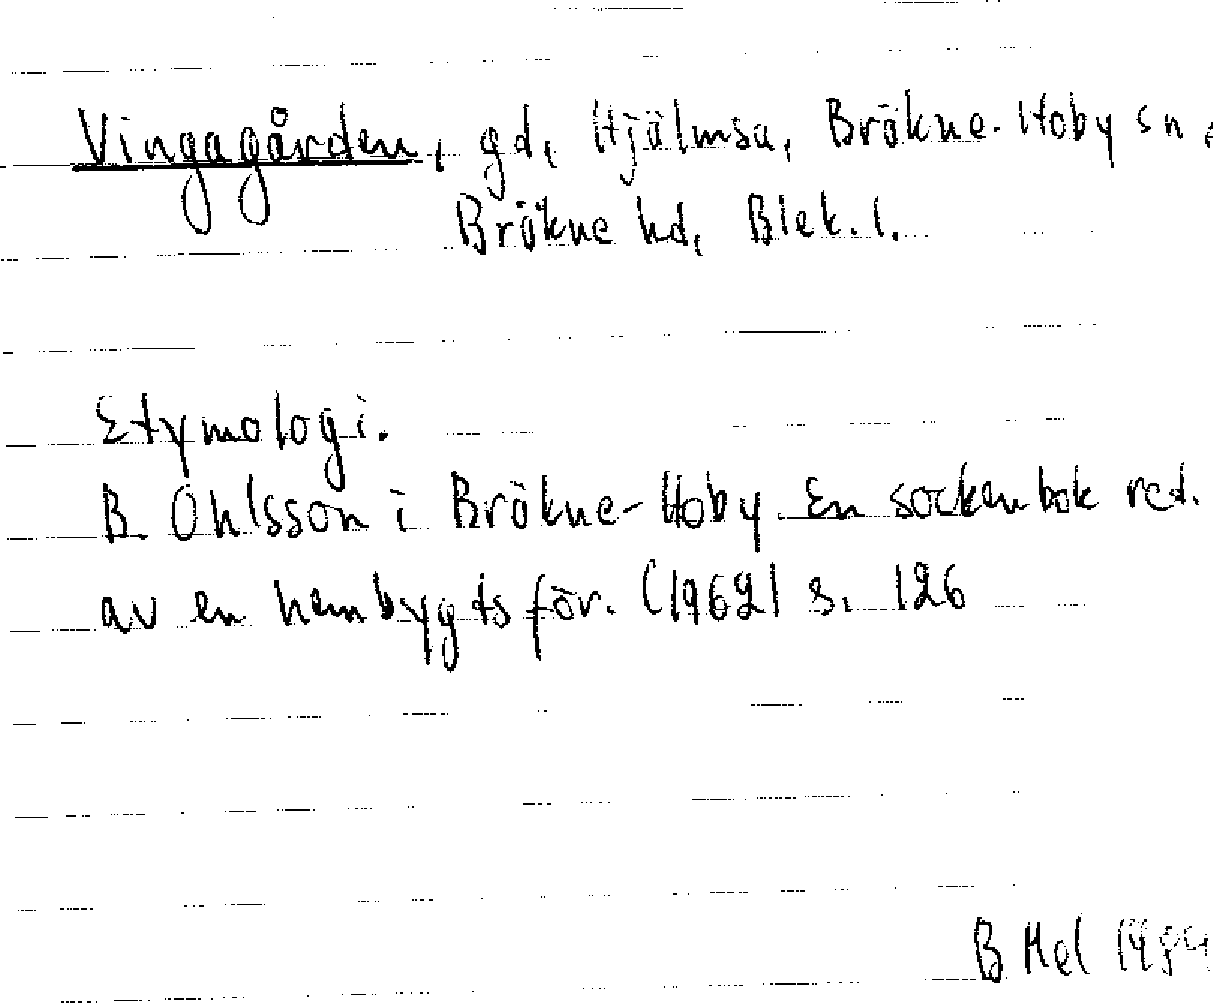 Vingagården, gd, Hjälmsa, Bräkne-Hoby sn,
Bräkne hd, Blek. l.
Etymologi.
B Ohlsson i Bräkne-Hoby En sockenbok red.
av en hembygdsför. (1962) s. 126
B Hel